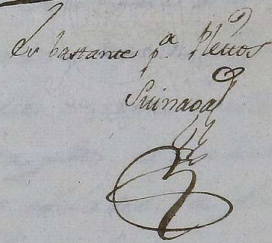 Es bastante p.ª Pleitos
Suinaga